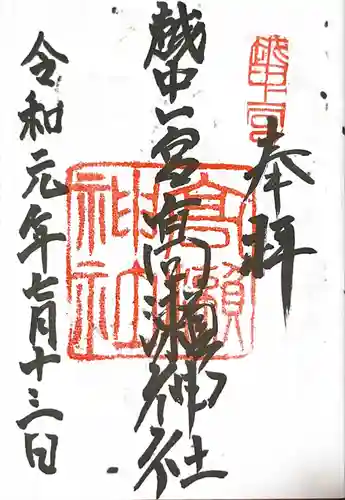 奉拝
越中一宮
越中一宮髙瀬神社
髙瀬神社
令和元年七月十三日